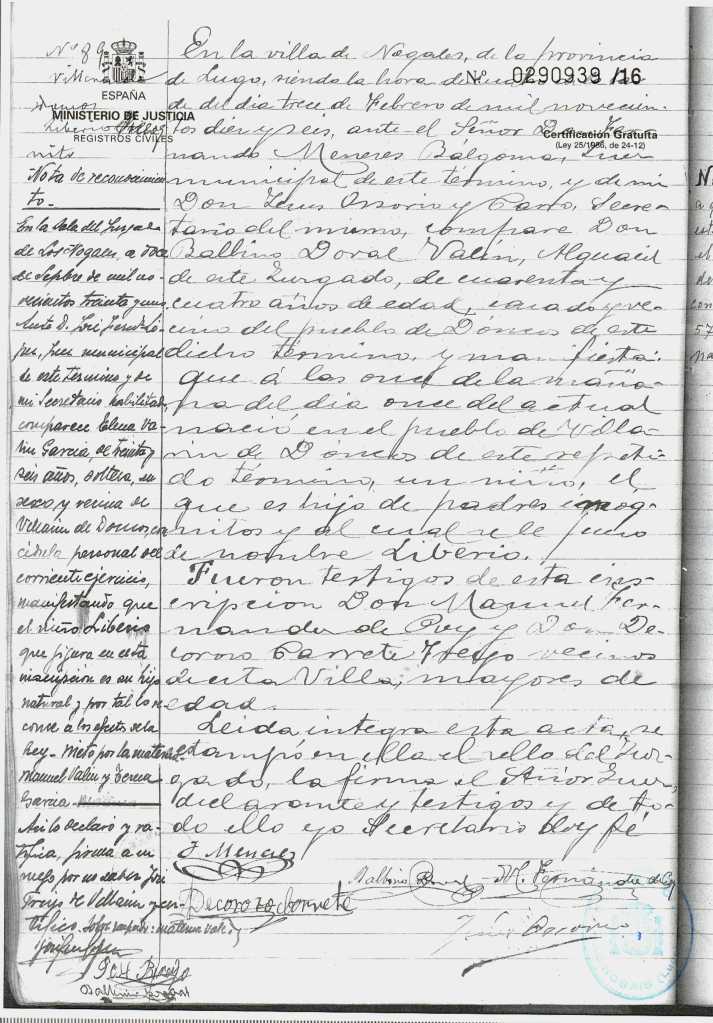 Nº 89
Villarin
ESPAÑA
MINISTERIO DE JUSTICIA
REGISTROS CIVILES
Nº 0290939 /16
Certificación Gratuita
(Ley 25/1986, de 24-12)
Liberio
nitos
Nota de reconocimien
to.
En la Sala del Juzgado
de Los Nogales, a doce
de Sepbre de mil no-
vecientos treinta y uno
Ante D. José Perez Ló
pez, juez municipal
de este termino y de
mi Secretario habilitado,
comparece Elena Va-
lin Garcia, de treinta y
seis años, soltera, su
sexo, y vecina de
Villarin de Doncos, con
cédula personal del
corriente ejercicio,
manifestando que
el niño Liberio
que figura en esta
inscripción es su hijo
natural y por tal lo re
conoce a los efectos de la
Ley.- Nieto por la materna
Manuel Valin y Teresa
Garcia.
Asi lo declaró y ra-
tifica, firma a su
ruego, por no saber, José
de Villarin y cer-
tifico.
José
Balbino Doral
En la villa de Nogales, de la provincia
de Lugo, siendo la hora de
de del dia trece de Febrero de mil novecien-
tos diez y seis, ante el Señor Don Fer-
nando Meneses Bálgoma, Juez
municipal de este término, y de mi
Don Jesus Ossorio y Parro, Secre-
tario del mismo, compare Don
Balbino Doral Valin, Alguacil
de este Juzgado, de cuarenta y
cuatro años de edad, casado y ve-
cino del pueblo de Dóncos de este
dicho término, y manifiesta:
que á las once de la maña-
na del dia once del actual
nació en el pueblo de Villa-
rin de Dóncos de este repeti-
do término, un niño, el
que es hijo de padres incog-
nitos y al cual se le puso
de nombre Liberio.
Fueron testigos de esta ins-
cripcion Don Manuel Fer-
nandez de Puy y Don De-
coroso Carrete Trego vecinos
de esta Villa, mayores de
edad.
Leida integra esta acta, se
estampó en ella el sello del Juz-
gado, la firma el Señor Juez,
declarante y testigos y de to-
do ello yo Secretario doy fé.
F. Meneses
Balbino Doral
M. Fernández de Puy
Decoroso Carrete
Jesús Ossorio